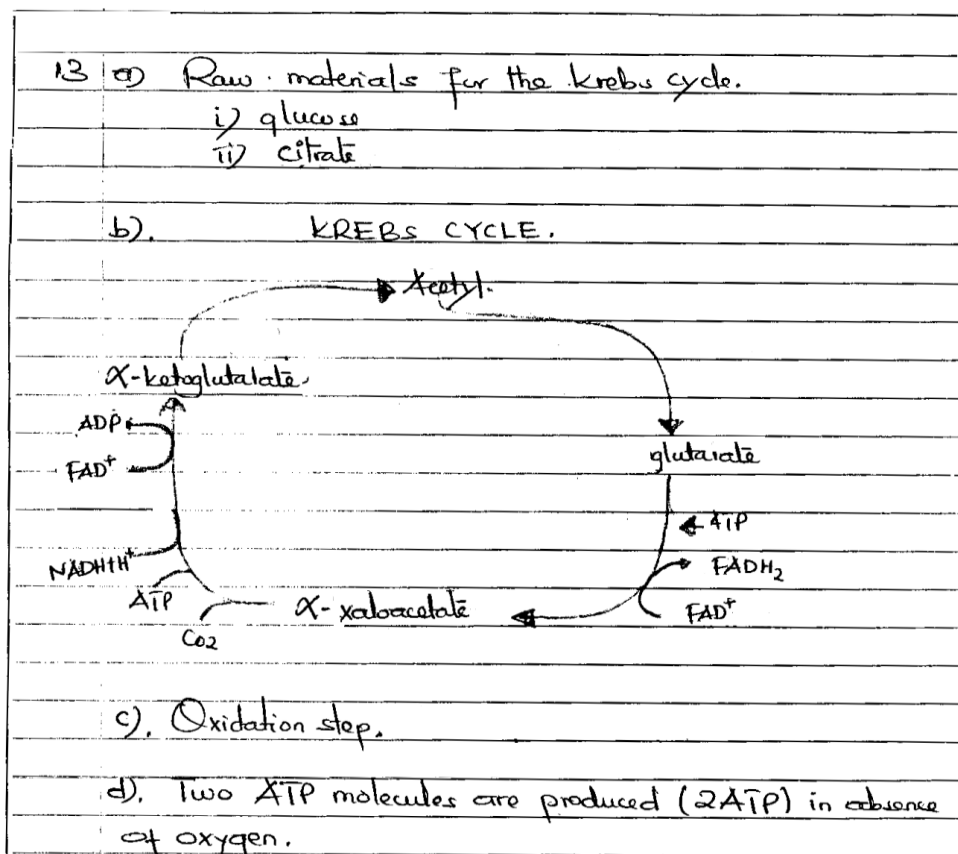 13 a) Raw materials for the krebs cycle.
i) glucose
ii) citrate
b). KREBS CYCLE.
Acetyl.
α-ketoglutalate.
ADP
glutarate
FAD⁺
ATP
NADH+H⁺
FADH₂
ATP
α-xaloacetate
FAD⁺
CO₂
c). Oxidation step.
d). Two ATP molecules are produced (2ATP) in absence
of oxygen.